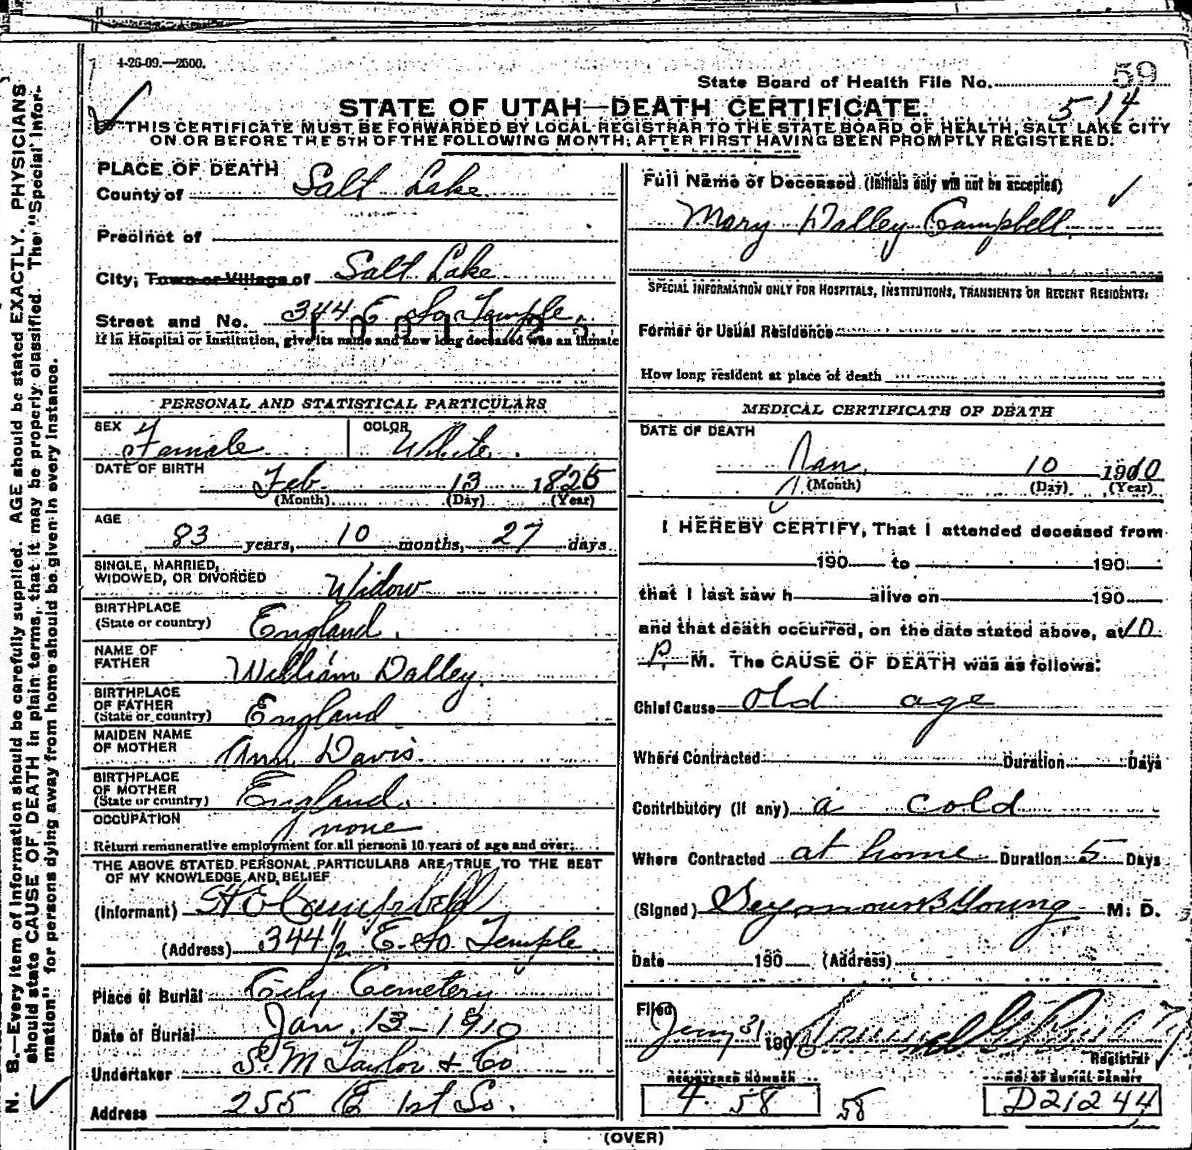 1-26-09.—2500.
59
State Board of Health File No.
514
STATE OF UTAH—DEATH CERTIFICATE.
THIS CERTIFICATE MUST BE FORWARDED BY LOCAL REGISTRAR TO THE STATE BOARD OF HEALTH, SALT LAKE CITY
ON OR BEFORE THE 5TH OF THE FOLLOWING MONTH; AFTER FIRST HAVING BEEN PROMPTLY REGISTERED.
PLACE OF DEATH
County of Salt Lake
Precinct of
City; Town or Village of Salt Lake
Street and No. 344 E So. Temple.
If in Hospital or Institution, give its name and how long deceased was an inmate
PERSONAL AND STATISTICAL PARTICULARS
SEX Female COLOR White.
DATE OF BIRTH Feb 13 1826
(Month) (Day) (Year)
AGE
83 years, 10 months, 27 days
SINGLE, MARRIED,
WIDOWED, OR DIVORCED Widow
BIRTHPLACE
(State or country) England.
NAME OF
FATHER William Dalley.
BIRTHPLACE
OF FATHER
(State or country) England
MAIDEN NAME
OF MOTHER Ann Davis.
BIRTHPLACE
OF MOTHER
(State or country) England.
OCCUPATION none
Return remunerative employment for all persons 10 years of age and over:
THE ABOVE STATED PERSONAL PARTICULARS ARE TRUE TO THE BEST
OF MY KNOWLEDGE AND BELIEF
(Informant) H E Campbell
(Address) 344 1/2 E. So. Temple
Place of Burial City Cemetery
Date of Burial Jan. 13-1910
Undertaker S. M Taylor & Co
Address 255 E 1st So.
Full Name of Deceased (Initials only will not be accepted)
Mary Dalley Campbell.
SPECIAL INFORMATION ONLY FOR HOSPITALS, INSTITUTIONS, TRANSIENTS OR RECENT RESIDENTS:
Former or Usual Residence
How long resident at place of death
MEDICAL CERTIFICATE OF DEATH
DATE OF DEATH
Jan. 10 1910
(Month) (Day) (Year)
I HEREBY CERTIFY, That I attended deceased from
190 to 190
that I last saw h alive on 190
and that death occurred, on the date stated above, at 10
P. M. The CAUSE OF DEATH was as follows:
Chief Cause old age
Where Contracted Duration Days
Contributory (if any) a cold
Where Contracted at home Duration 5 Days
(Signed) Seymour B Young M. D.
Date 190 (Address)
Filed Jany 31 190
Registrar
REGISTERED NUMBER NO. OF BURIAL PERMIT
4 58 58 D21244
(OVER)
N. B.—Every item of information should be carefully supplied. AGE should be stated EXACTLY. PHYSICIANS
should state CAUSE OF DEATH in plain terms, that it may be properly classified. The "Special Infor-
mation" for persons dying away from home should be given in every instance.